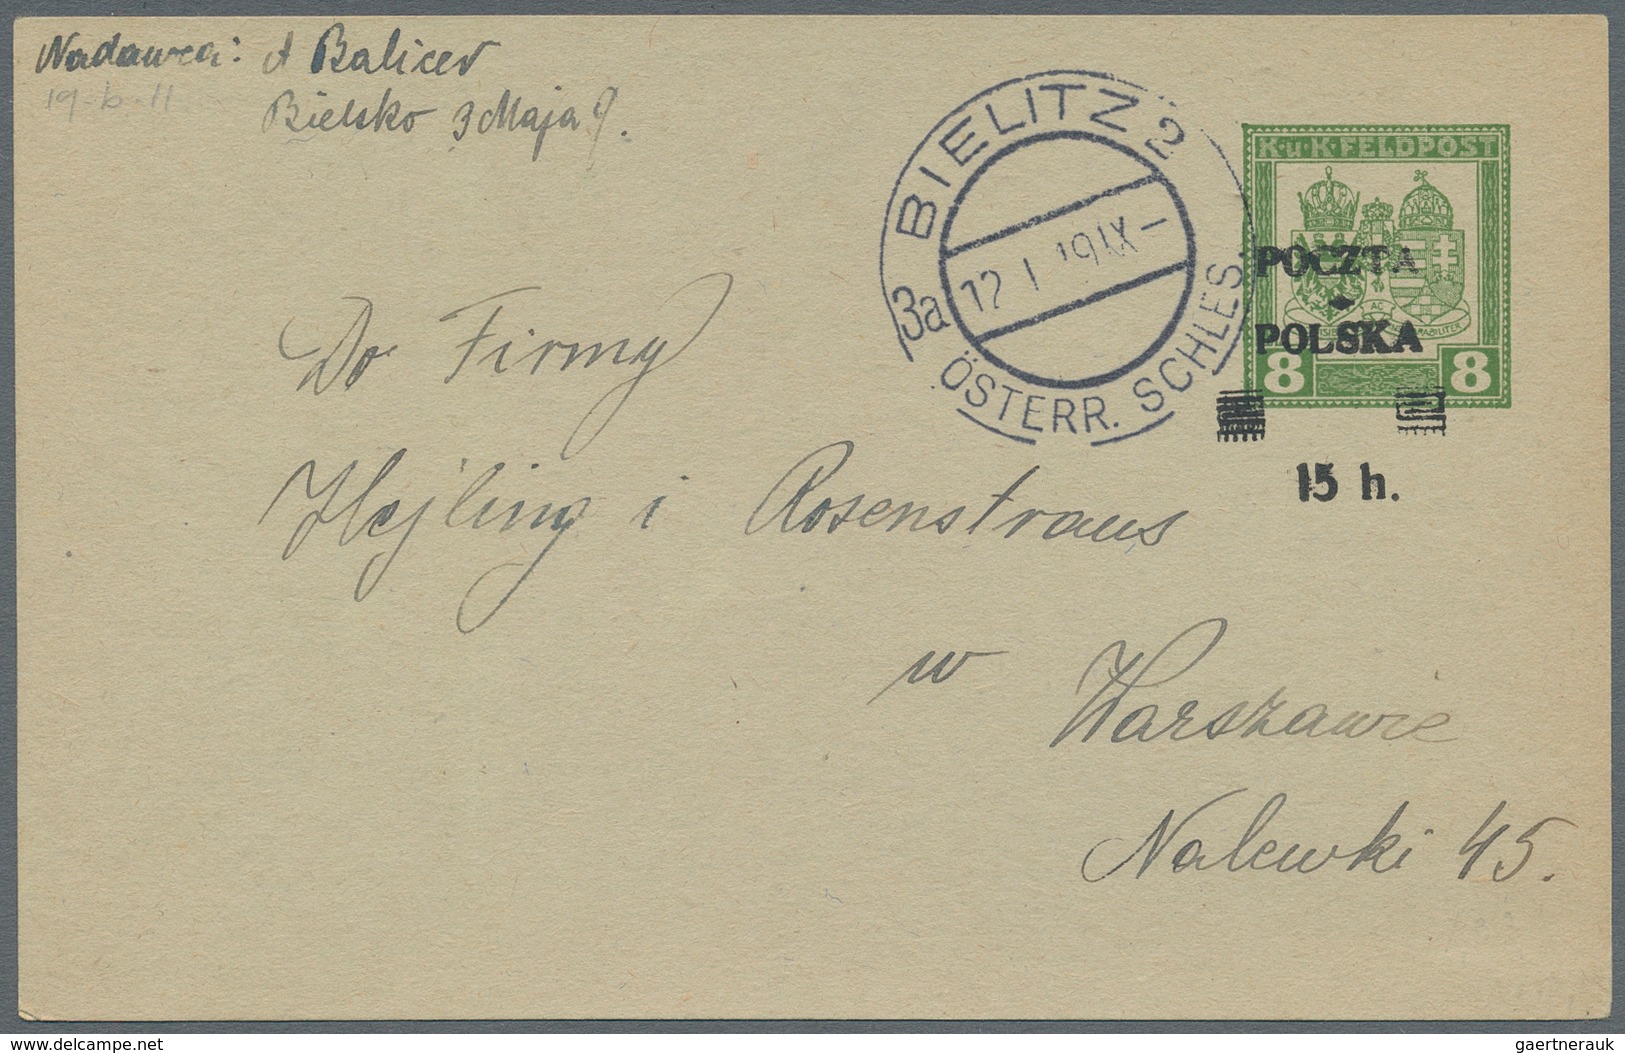 Nadawca: A Balicer
19-6-11
Bielsko 3 Maja 9.
BIELITZ 2
3a
12 I 19 IX -
ÖSTERR. SCHLES.
K.u.K.FELDPOST
POCZTA
POLSKA
8 8
15 h.
Do Firmy
Hejling i Rosenstraus
w Warszawie
Nalewki 45.
delcampe.net
gaertnerauk